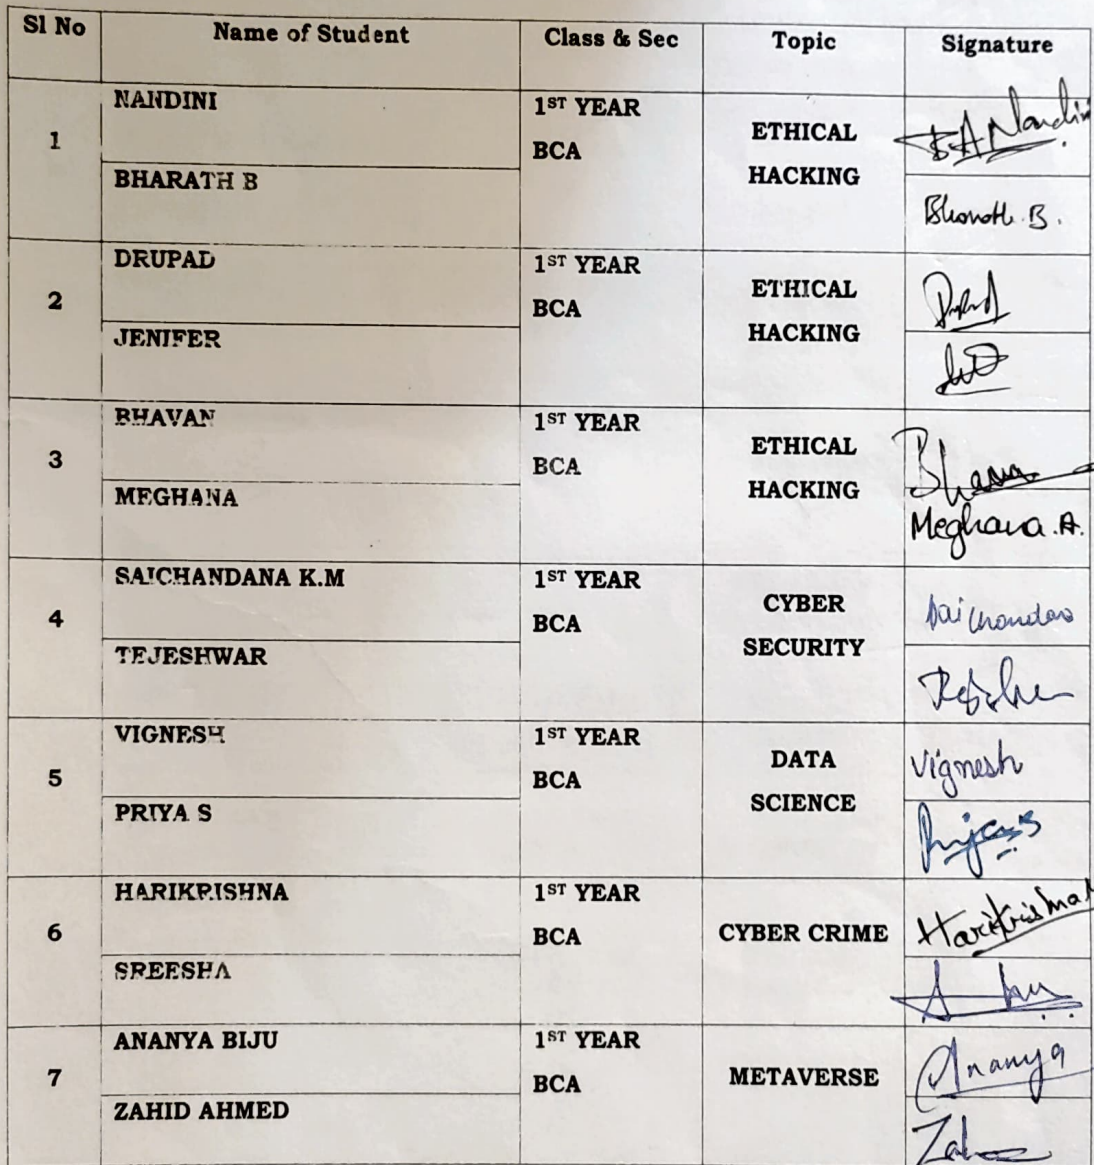 Sl No Name of Student Class & Sec Topic Signature
NANDINI 1ST YEAR
1 BCA ETHICAL HACKING B A Nandini
BHARATH B Bharath. B.
DRUPAD 1ST YEAR
2 BCA ETHICAL HACKING
JENIFER
BHAVAN 1ST YEAR
3 BCA ETHICAL HACKING
MEGHANA Meghana. A.
SAICHANDANA K.M 1ST YEAR
4 BCA CYBER SECURITY Saichandana
TEJESHWAR
VIGNESH 1ST YEAR
5 BCA DATA SCIENCE Vignesh
PRIYA S
HARIKRISHNA 1ST YEAR
6 BCA CYBER CRIME Harikrishna
SREESHA
ANANYA BIJU 1ST YEAR
7 BCA METAVERSE Ananya
ZAHID AHMED